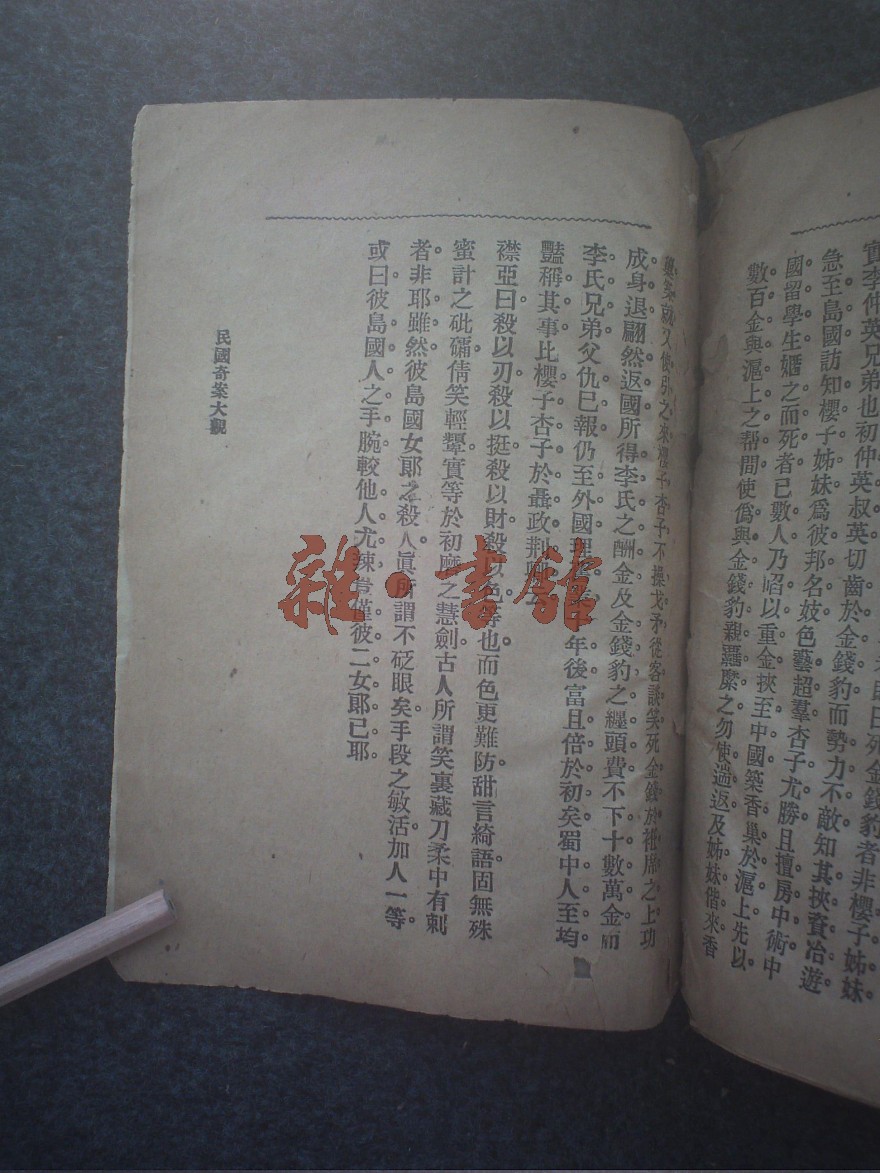 死金錢豹者非櫻子姊妹
實李仲英兄弟也初仲英叔英切齒於金錢豹而勢力不敵知其挾資冶遊
急至島國訪知櫻子姊妹爲彼邦名妓色藝超羣杏子尤勝且擅房中術中
國留學生婚之而死者已數人乃啗以重金挾至中國築香巢於滬上先以
數百金與滬上之帮間使僞與金錢豹親羈縻之勿使遄返及姊妹偕來香
巢築就又使引之來櫻子杏子不操戈矛從容談笑死金錢於袵席之上功
成身退翩然返國所得李氏之酬金及金錢豹之纏頭費不下十數萬金而
李氏兄弟父仇已報仍至外國理年後富且倍於初矣蜀中人至均
豔稱其事比櫻子杏子於聶政荆
襟亞曰殺以刃殺以挺殺以財殺以色等也而色更難防甜言綺語固無殊
蜜計之砒礵倩笑輕顰實等於初磨之慧劍古人所謂笑裏藏刀柔中有刺
者非耶雖然彼島國女郞之殺人眞所謂不砭眼矣手段之敏活加人一等
或曰彼島國人之手腕較他人尤辣豈僅彼二女郞已耶
民國奇案大觀
雜·書館